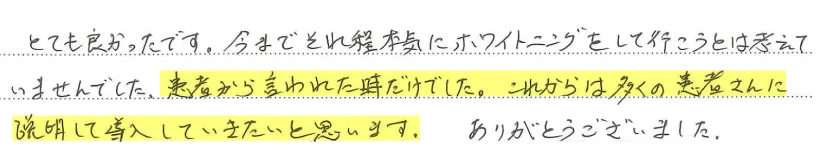 とても良かったです。今までそれ程本気にホワイトニングをして行こうとは考えて
いませんでした、患者から言われた時だけでした。これからは多くの患者さんに
説明して導入していきたいと思います。 ありがとうございました。